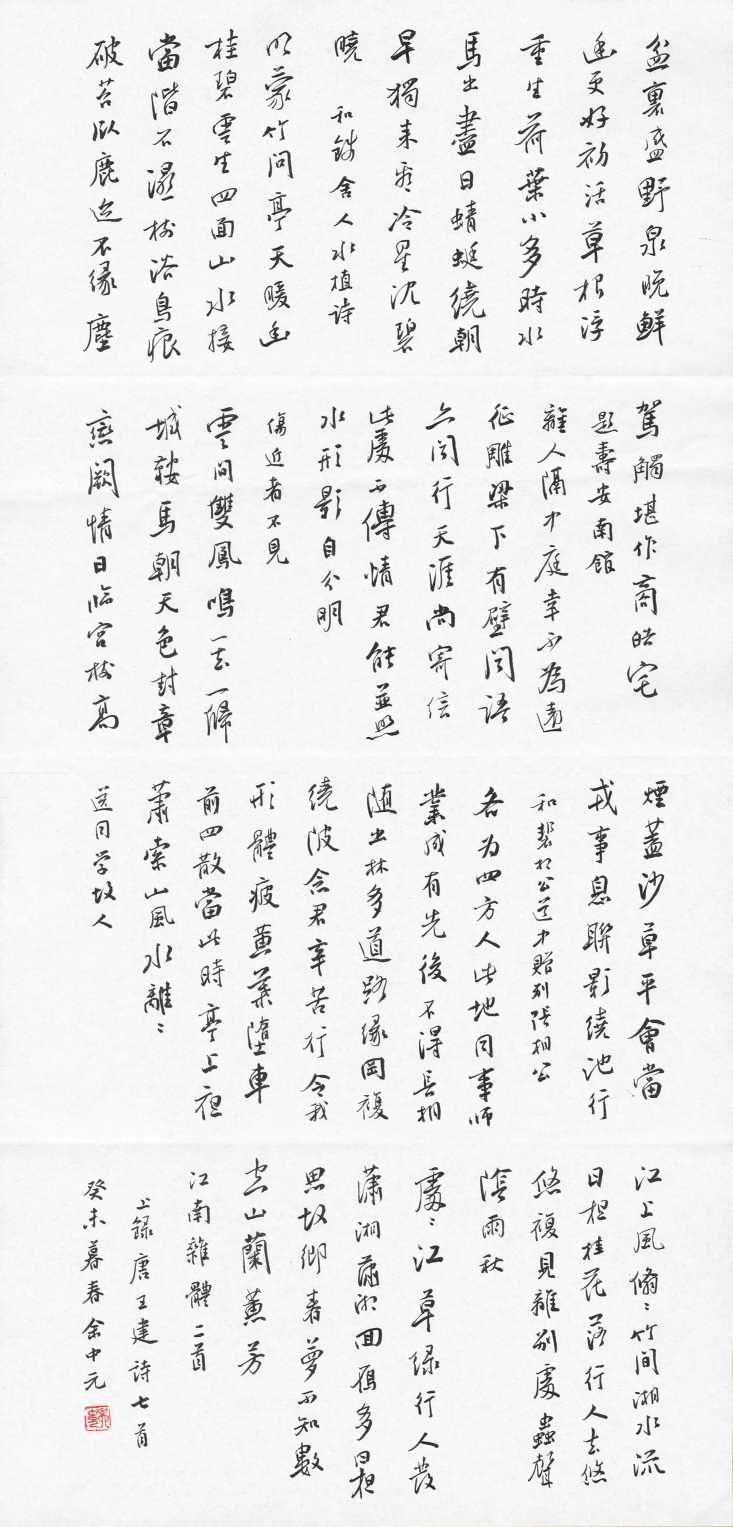 盆裏盛野泉晚鮮
幽更好初活草根浮
重生荷葉小多時水
馬出盡日蜻蜓繞朝
早獨來看冷星沈碧
曉 和錢舍人水植詩
似蒙竹間亭天暖幽
桂碧雲生四面山水接
當階石濕樹浴鳥痕
破苔臥鹿迹不緣塵
駕觸堪作商皓宅
題壽安南館
離人隔中庭幸不為遠
征雕梁下有壁聞語
亦聞行天涯尚寄信
此處不傳情君能並照
水形影自分明
傷近者不見
雲間雙鳳鳴一去一歸
城鞍馬朝天色封章
戀闕情日臨宮樹高
煙蓋沙草平會當
戎事息聯影繞池行
和裴相公道中贈別張相公
各為四方人此地同事師
業成有先後不得長相
隨出林多道路緣岡複
繞陂念君辛苦行令我
形體疲黃葉墮車
前四散當此時亭上夜
蕭索山風水離〻
送同學故人
江上風翛〻竹間湘水流
日夜桂花落行人去悠
悠複見離別處蟲聲
陰雨秋
處〻江草綠行人發
瀟湘瀟湘回雁多日夜
思故鄉春夢不知數
空山蘭蕙芳
江南雜體二首
上錄唐王建詩七首
癸未暮春余中元